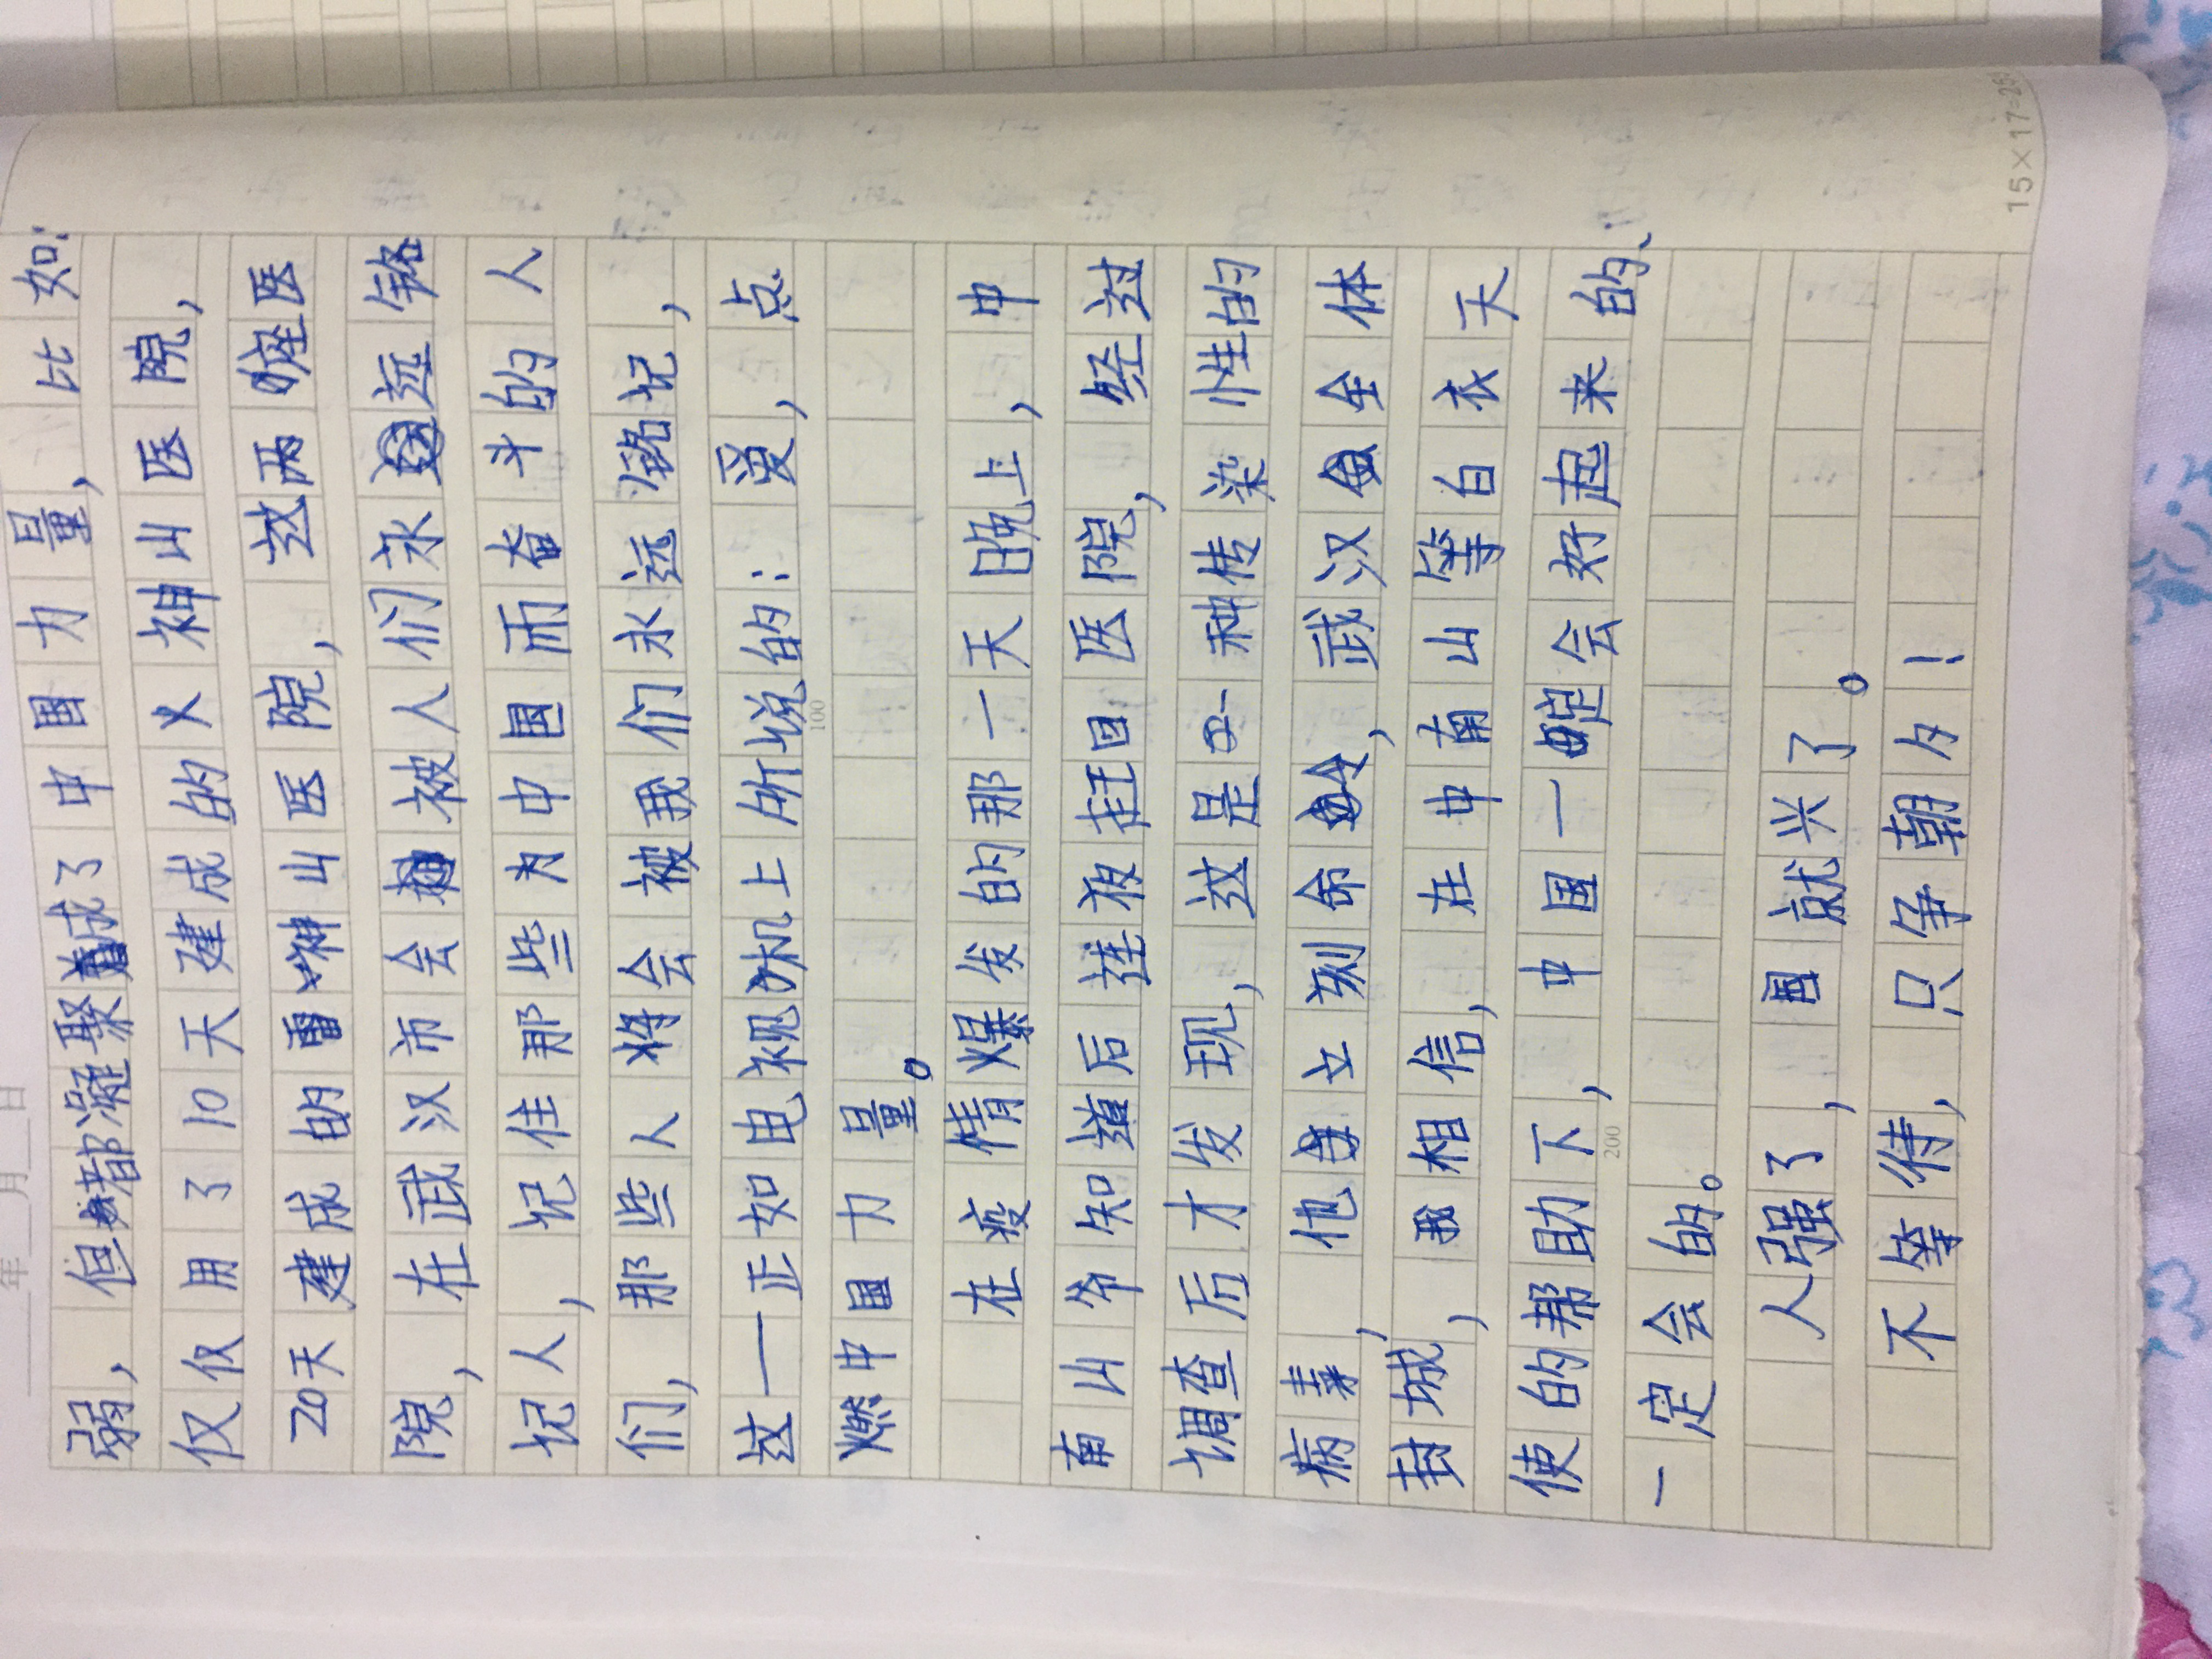 年 月 日
弱，但都凝聚成了中国力量，比如：
仅仅用了10天建成的火神山医院，
20天建成的雷神山医院，这两座医
院，在武汉市会被人们永远铭
记人，记住那些为中国而奋斗的人
们，那些人将会被我们永远铭记，
这一正如电视机上所说的：爱，点
100
燃中国力量。
在疫情爆发的那一天晚上，中
南山爷知道后连夜赶回医院，经过
调查后才发现，这是一种传染性的
病毒，他立刻命令，武汉全体
封城，我相信，在中南山等白衣天
使的帮助下，中国一定会好起来的、
200
一定会的。
人强了，国就兴了。
不等待，只争朝夕！
15×17=255